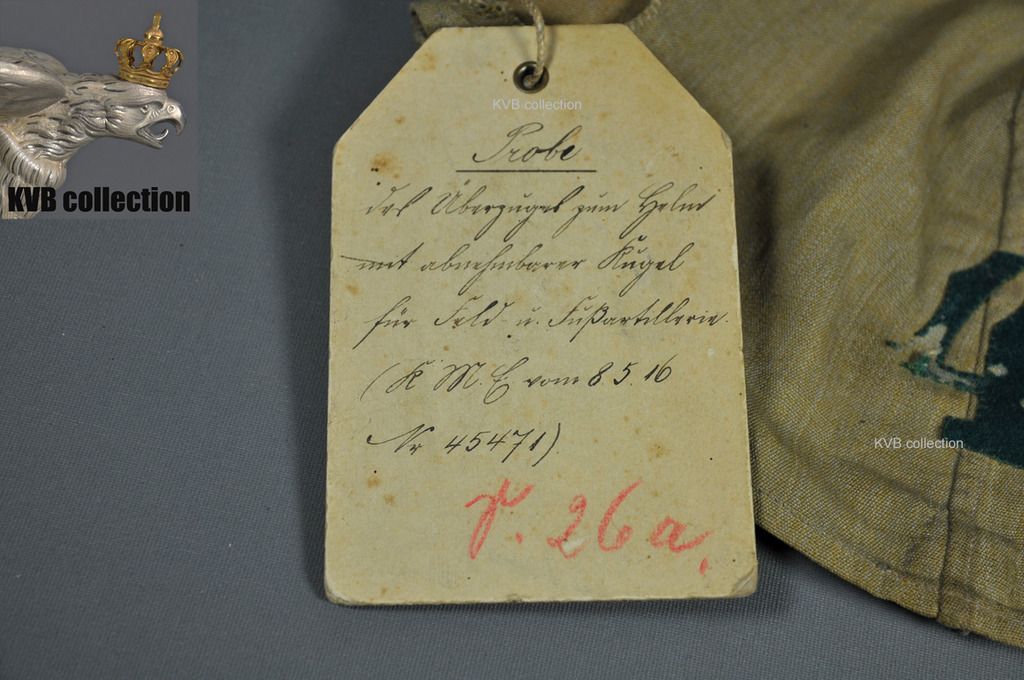 KVB collection
KVB collection
Probe
des Überzuges zum Helm
mit abnehmbarer Kugel
für Feld- u. Fußartillerie.
(K. M. E. vom 8.5.16
Nr 45471)
26a.
KVB collection